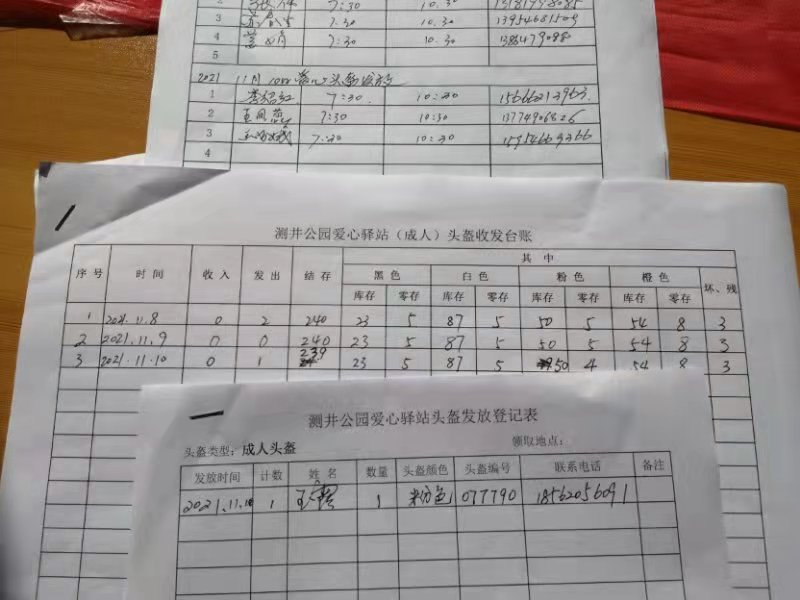 2 7:30 10.30 13181998085
3 7:30 10:30 13954681509
4 7:30 10.30
5
2021 11月10日爱心头盔发放
1 李绍红 7:30 10:30 15666213963
2 王凤燕 7:30 10:30 13774906826
3 7:30 10:30 15954663266
4
测井公园爱心驿站（成人）头盔收发台账
序号 时间 收入 发出 结存 其中
黑色 白色 粉色 橙色 坏、残
库存 零存 库存 零存 库存 零存 库存 零存
1 2021.11.8 0 2 240 23 5 87 5 50 5 54 8 3
2 2021.11.9 0 0 240 23 5 87 5 50 5 54 8 3
3 2021.11.10 0 1 239 23 5 87 5 50 4 54 8 3
测井公园爱心驿站头盔发放登记表
头盔类型：成人头盔 领取地点：
发放时间 计数 姓名 数量 头盔颜色 头盔编号 联系电话 备注
2021.11.10 1 1 粉色 077790 18562056091